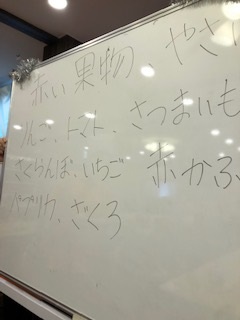 赤い果物、やさ
りんご、トマト、さつまいも
さくらんぼ、いちご 赤かぶ
パプリカ、ざくろ